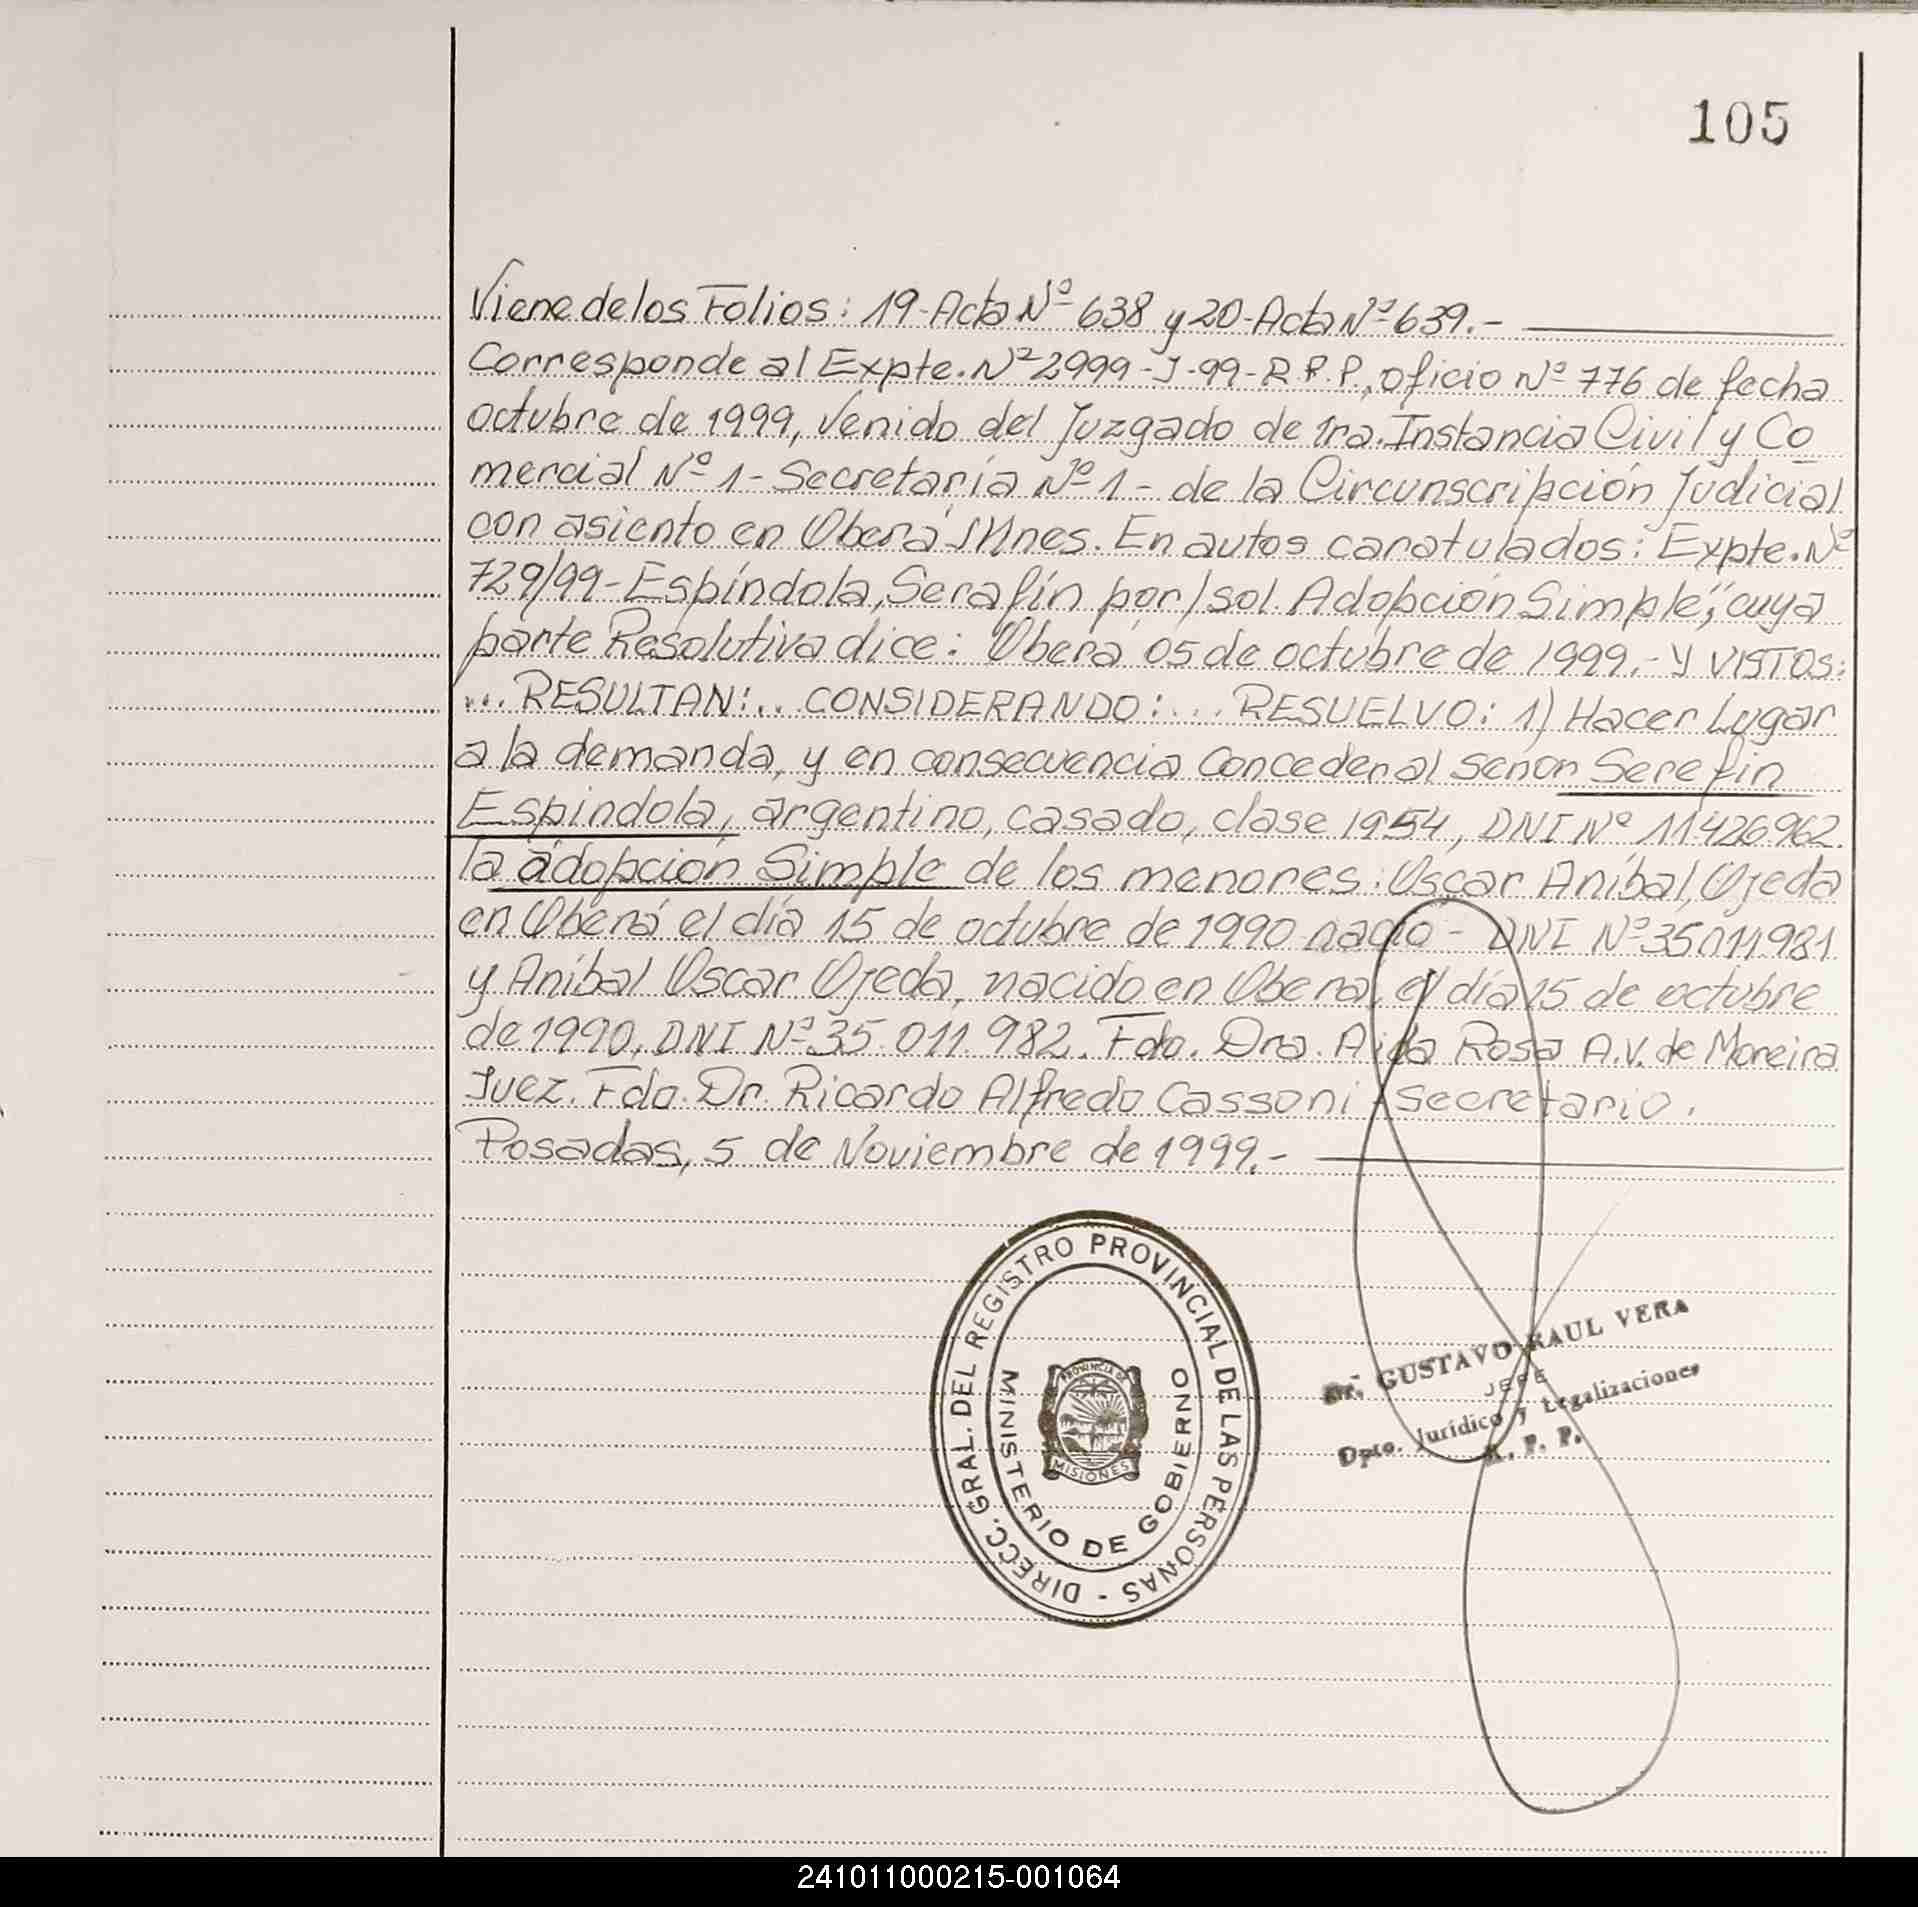 105
Viene de los Folios: 19-Acta Nº 638 y 20-Acta Nº 639.-
Corresponde al Expte. Nº 2999-J-99-R.P.P., oficio Nº 776 de fecha
octubre de 1999, venido del Juzgado de 1ra. Instancia Civil y Co
mercial Nº 1- Secretaría Nº 1 - de la Circunscripción Judicial
con asiento en Oberá Mnes. En autos caratulados: Expte. Nº
729/99-Espíndola, Serafín por/sol. Adopción Simple", cuya
parte Resolutiva dice: Oberá 05 de octubre de 1999.- Y VISTOS:
... RESULTAN:... CONSIDERANDO:... RESUELVO: 1) Hacer Lugar
a la demanda, y en consecuencia Conceder al señor Serefin
Espindola, argentino, casado, clase 1954, DNI Nº 11.426.962.
la adopción Simple de los menores: Oscar Aníbal, Ojeda
en Oberá el día 15 de octubre de 1990 nacio - DNI Nº 35.011.981
y Aníbal Oscar Ojeda, nacido en Obera, el día 15 de octubre
de 1990, DNI Nº 35.011.982. Fdo. Dra. Aida Rosa A.V. de Moreira
Juez. Fdo. Dr. Ricardo Alfredo Cassoni - Secretario.
Posadas, 5 de Noviembre de 1999.-
DIRECC. GRAL. DEL REGISTRO PROVINCIAL DE LAS PERSONAS -
MINISTERIO DE GOBIERNO
PROVINCIA DE
MISIONES
Dr. GUSTAVO RAUL VERA
JEFE
Dpto. Jurídico y Legalizaciones
R. P. P.
241011000215-001064